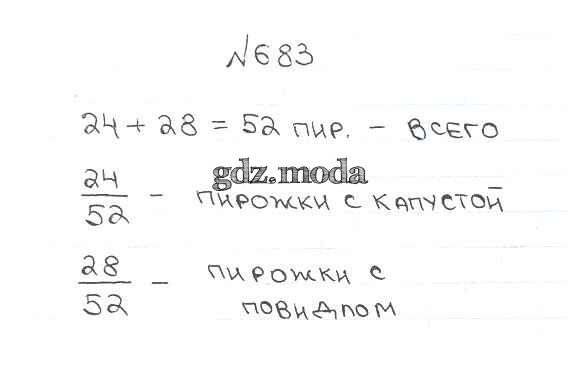 №683
24 + 28 = 52 пир. - всего
gdz.moda
24/52 - пирожки с капустой
28/52 - пирожки с
повидлом